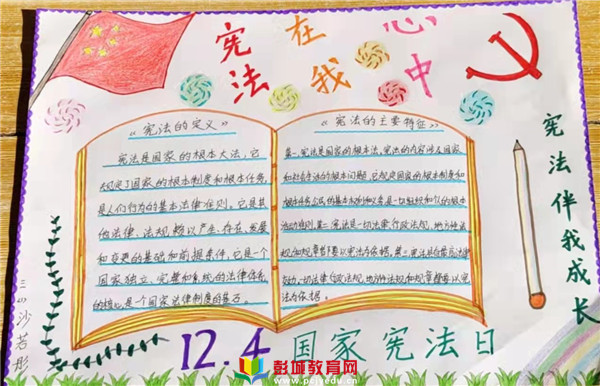 宪法在我心中
《宪法的定义》
宪法是国家的根本大法,它
规定了国家的根本制度和根本任务,
是人们行为的基本法律准则。它是其
他法律、法规赖以产生、存在、发展
和变更的基础和前提条件,它是一个
国家独立、完整和系统的法律体系
的核心,是一个国家法律制度的基石。
《宪法的主要特征》
第一,宪法是国家的根本法,宪法的内容涉及国家
和社会生活的根本问题,它规定国家的根本制度和
根本任务公民的基本权利和义务是一切组织和个人的根本
活动准则。第二宪法是一切法律、行政法规、地方性法
规和规章都要以宪法为依据。第三宪法具有最高法律
效力,一切法律行政法规、地方性法规和规章都要以宪
法为依据。
宪法伴我成长
三(1)沙若彤
12.4国家宪法日
彭城教育网
www.pcjyedu.cn